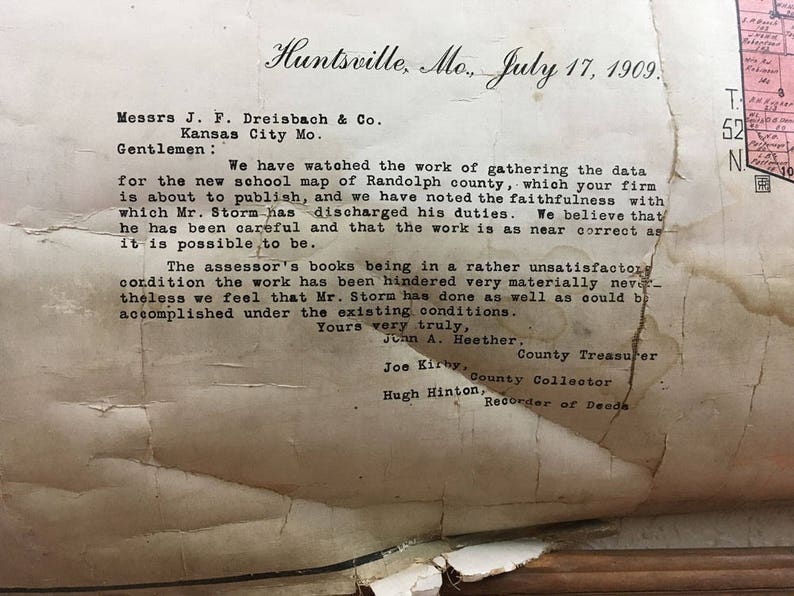 Huntsville, Mo., July 17, 1909.
Messrs J. F. Dreisbach & Co.
Kansas City Mo.
Gentlemen:
We have watched the work of gathering the data
for the new school map of Randolph county, which your firm
is about to publish, and we have noted the faithfulness with
which Mr. Storm has discharged his duties. We believe that
he has been careful and that the work is as near correct as
it is possible to be.
The assessor's books being in a rather unsatisfactory
condition the work has been hindered very materially never-
theless we feel that Mr. Storm has done as well as could be
accomplished under the existing conditions.
Yours very truly,
John A. Heether,
County Treasurer
Joe Kirby,
County Collector
Hugh Hinton,
Recorder of Deeds
T.
52
N.
Robinson
3
10